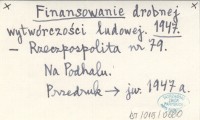 Finansowanie drobnej
wytwórczości ludowej. 1947.
– Rzeczpospolita nr 79.
Na Podhalu.
Przedruk → jw. 1947 a.